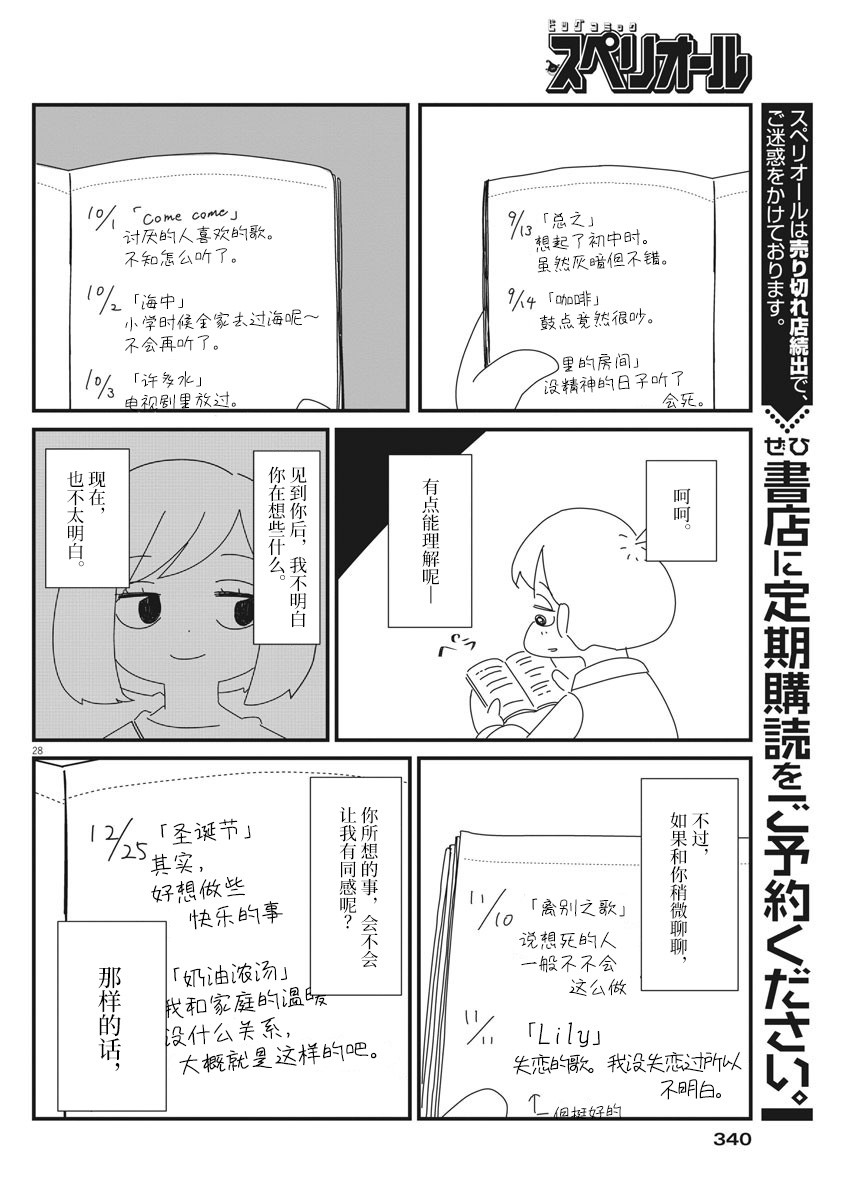 ビッグコミック
スペリオール
スペリオールは売り切れ店続出で、
ご迷惑をかけております。
ぜひ書店に定期購読をご予約ください。
9/13「总之」
想起了初中时。
虽然灰暗但不错。
9/14「咖啡」
鼓点竟然很吵。
里的房间」
没精神的日子听了
会死。
10/1「Come come」
讨厌的人喜欢的歌。
不知怎么听了。
10/2「海中」
小学时候全家去过海呢～
不会再听了。
10/3「许多水」
电视剧里放过。
呵呵。
有点能理解呢—
ペら
见到你后，我不明白
你在想些什么。
现在，
也不太明白。
28
不过，
如果和你稍微聊聊，
11/10「离别之歌」
说想死的人
一般不不会
这么做
11/11「Lily」
失恋的歌。我没失恋过所以
不明白。
↑一个挺好的
你所想的事，会不会
让我有同感呢？
12/25「圣诞节」
其实，
好想做些
快乐的事
「奶油浓汤」
我和家庭的温暖
没什么关系，
大概就是这样的吧。
那样的话，
340